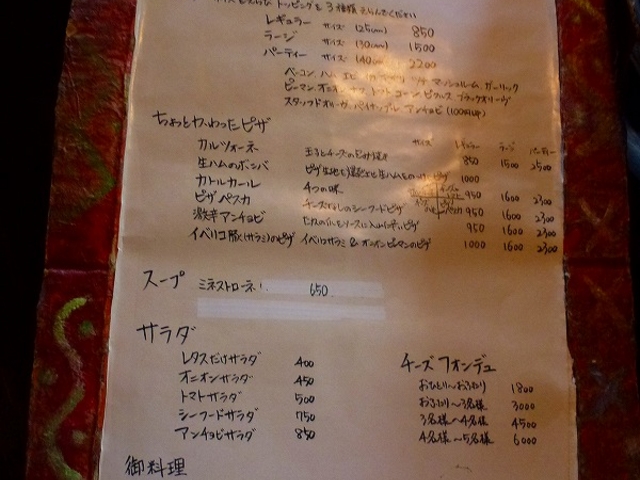 トッピングを3種類えらんでください
レギュラー サイズ (25cm) 850
ラージ サイズ (30cm) 1500
パーティー サイズ (40cm) 2200
ベーコン ハム エビ イカ マッシュルーム ガーリック
ピーマン オニオン ナス トマト コーン ピクルス ブラックオリーブ
スタッフドオリーブ パイナップル アンチョビ (100円UP)
ちょっとかわったピザ
サイズ レギュラー ラージ パーティー
カルツォーネ 玉子とチーズの 850 1500 2500
生ハムのボンバ 1000
カトルカール 4つの味 950 1600 2300
ピザペスカ チーズなしのシーフードピザ 950 1600 2300
激辛アンチョビ 950 1600 2300
イベリコ豚(サラミ)のピザ イベリコサラミ & オニオンピーマンのピザ 1000 1600 2300
スープ ミネストローネ! 650
サラダ
レタスだけサラダ 400
オニオンサラダ 450
トマトサラダ 500
シーフードサラダ 750
アンチョビサラダ 850
チーズフォンデュ
おひとり〜おふたり 1800
おふたり〜3名様 3000
3名様〜4名様 4500
4名様〜5名様 6000
御料理